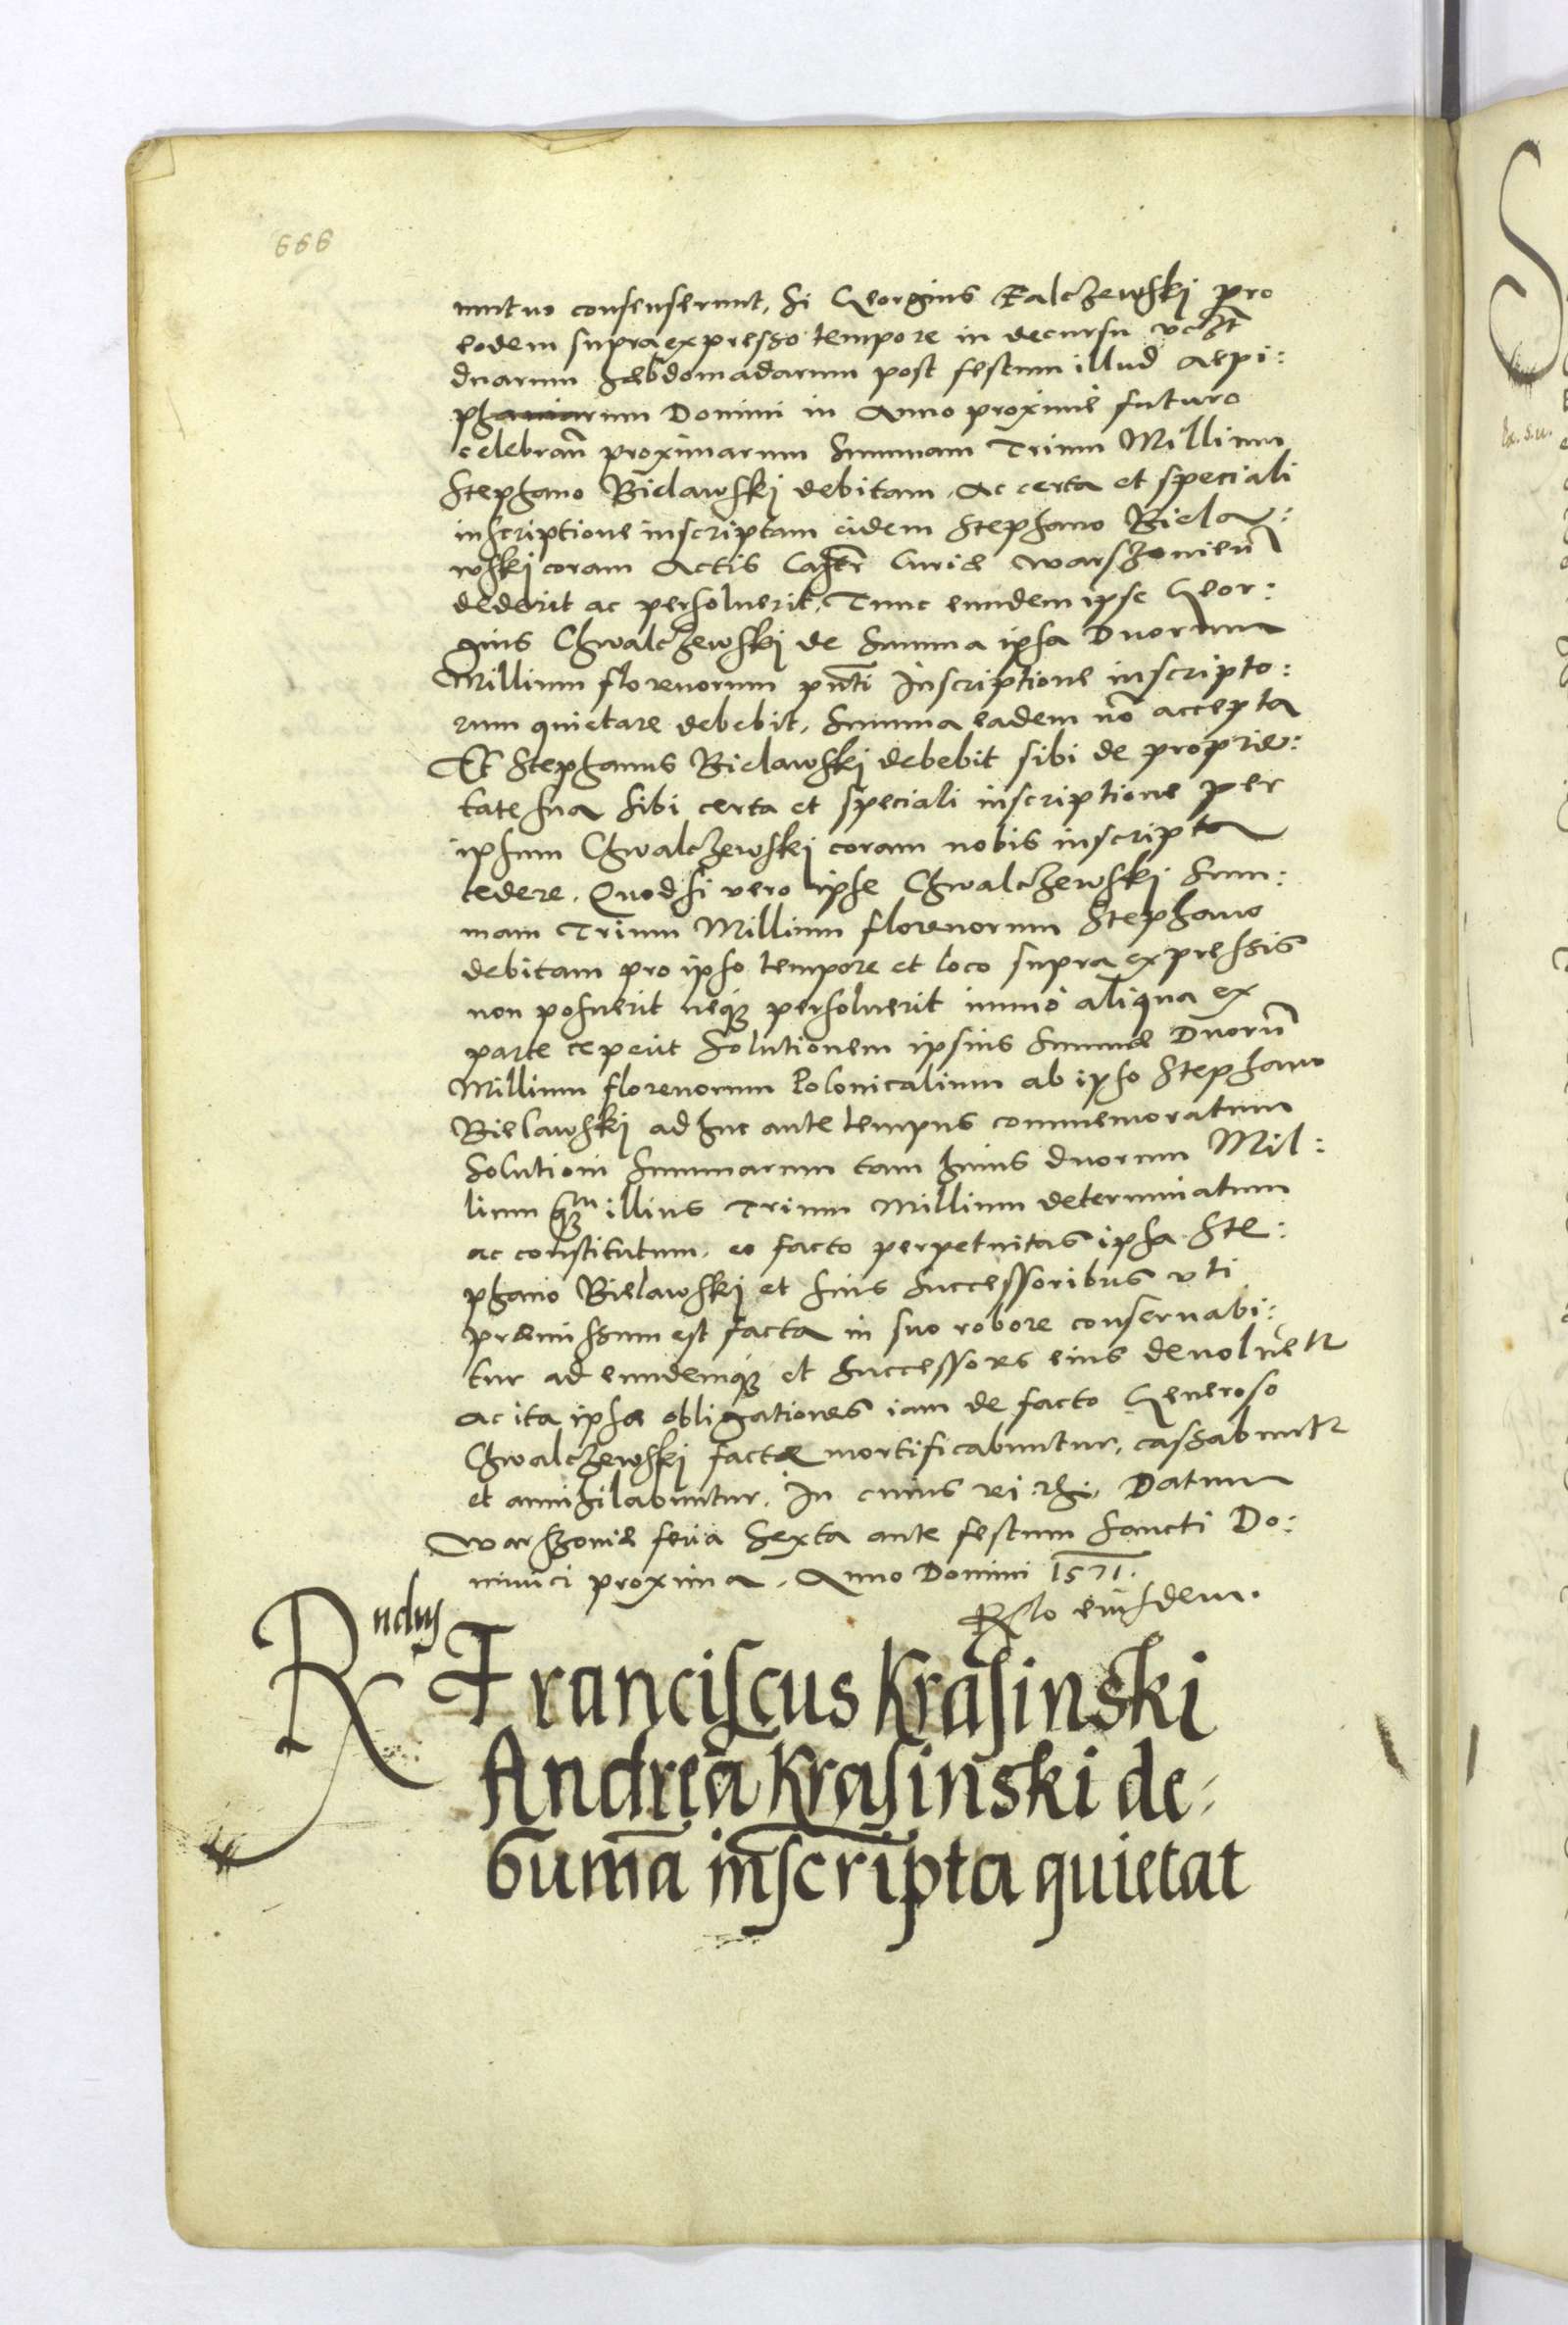 666
mutuo consenserunt, Si Georgius Falczewskj pro
eodem supraexpresso tempore in decursu vczt
duarum hebdomadarum post festum illud Aepi:
phaniarum Domini in Anno proxime futuro
celebrañ proximarum Summam Trium Millium
Stephano Bielawskj debitam, Ac certa et speciali
inscriptione inscriptam eidem Stephano Biela:
wskj coram Actis Castr Curiæ warszovieñ
dederit ac persoluerit, Tunc eundem ipse Geor:
gius Chwalczewskj de Summa ipsa Duorum
Millium florenorum pñti Inscriptione inscripto:
rum quietare debebit, Summa eadem nõ accepta
Et Stephanus Bielawskj debebit sibi de proprie:
tate sua sibi certa et speciali inscriptione per
ipsum Chwalczewskj coram nobis inscripta
cedere. Quod si vero ipse Chwalczewskj Sum:
mam Trium Millium florenorum Stephano
debitam pro ipso tempore et loco supra expressis
non posuerit neq3 persoluerit immo aliqua ex
parte ceperit Solutionem ipsius Summæ Duorũ
Millium florenorum Polonicalium ab ipso Stephano
Bielawskj ad huc ante tempus commemoratum
Solutioni Summarum tam huius duorum Mil:
lium q3m illius Trium Millium determinatum
ac constitutum, eo facto perpetuitas ipsa Ste:
phano Bielawskj et suis Successoribus vti
præmissum est facta in suo robore conseruabi:
tur ad eundemq3 et Successores eius deuoluetr
Ac ita ipsæ obligationes iam de facto Generoso
Chwalczewskj factæ mortificabuntur, cassabuntr
et annihilabuntur. In cuius rei Datum
warszoviæ feria Sexta ante festum Sancti Do:
minici proxima. Anno Domini 1571.
Rlo eiusdem.
Rndus Franciscus Krasinski
Andreã Krasinski de
Sumã inscripta quietat